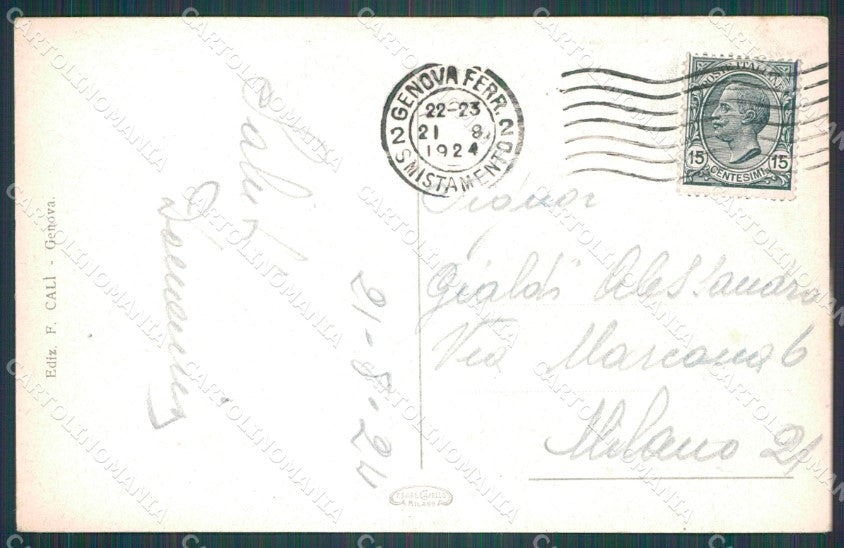 Ediz. F. CALÌ - Genova.
Saluti
21-8-24
GENOVA FERR.
22-23
21 8
1924
2 SMISTAMENTO 2
POSTE ITALIANE
15 15
CENTESIMI
Signor
Gialdi Alessandro
Via Marcona 6
Milano
MILANO
CARTOLINOMANIA